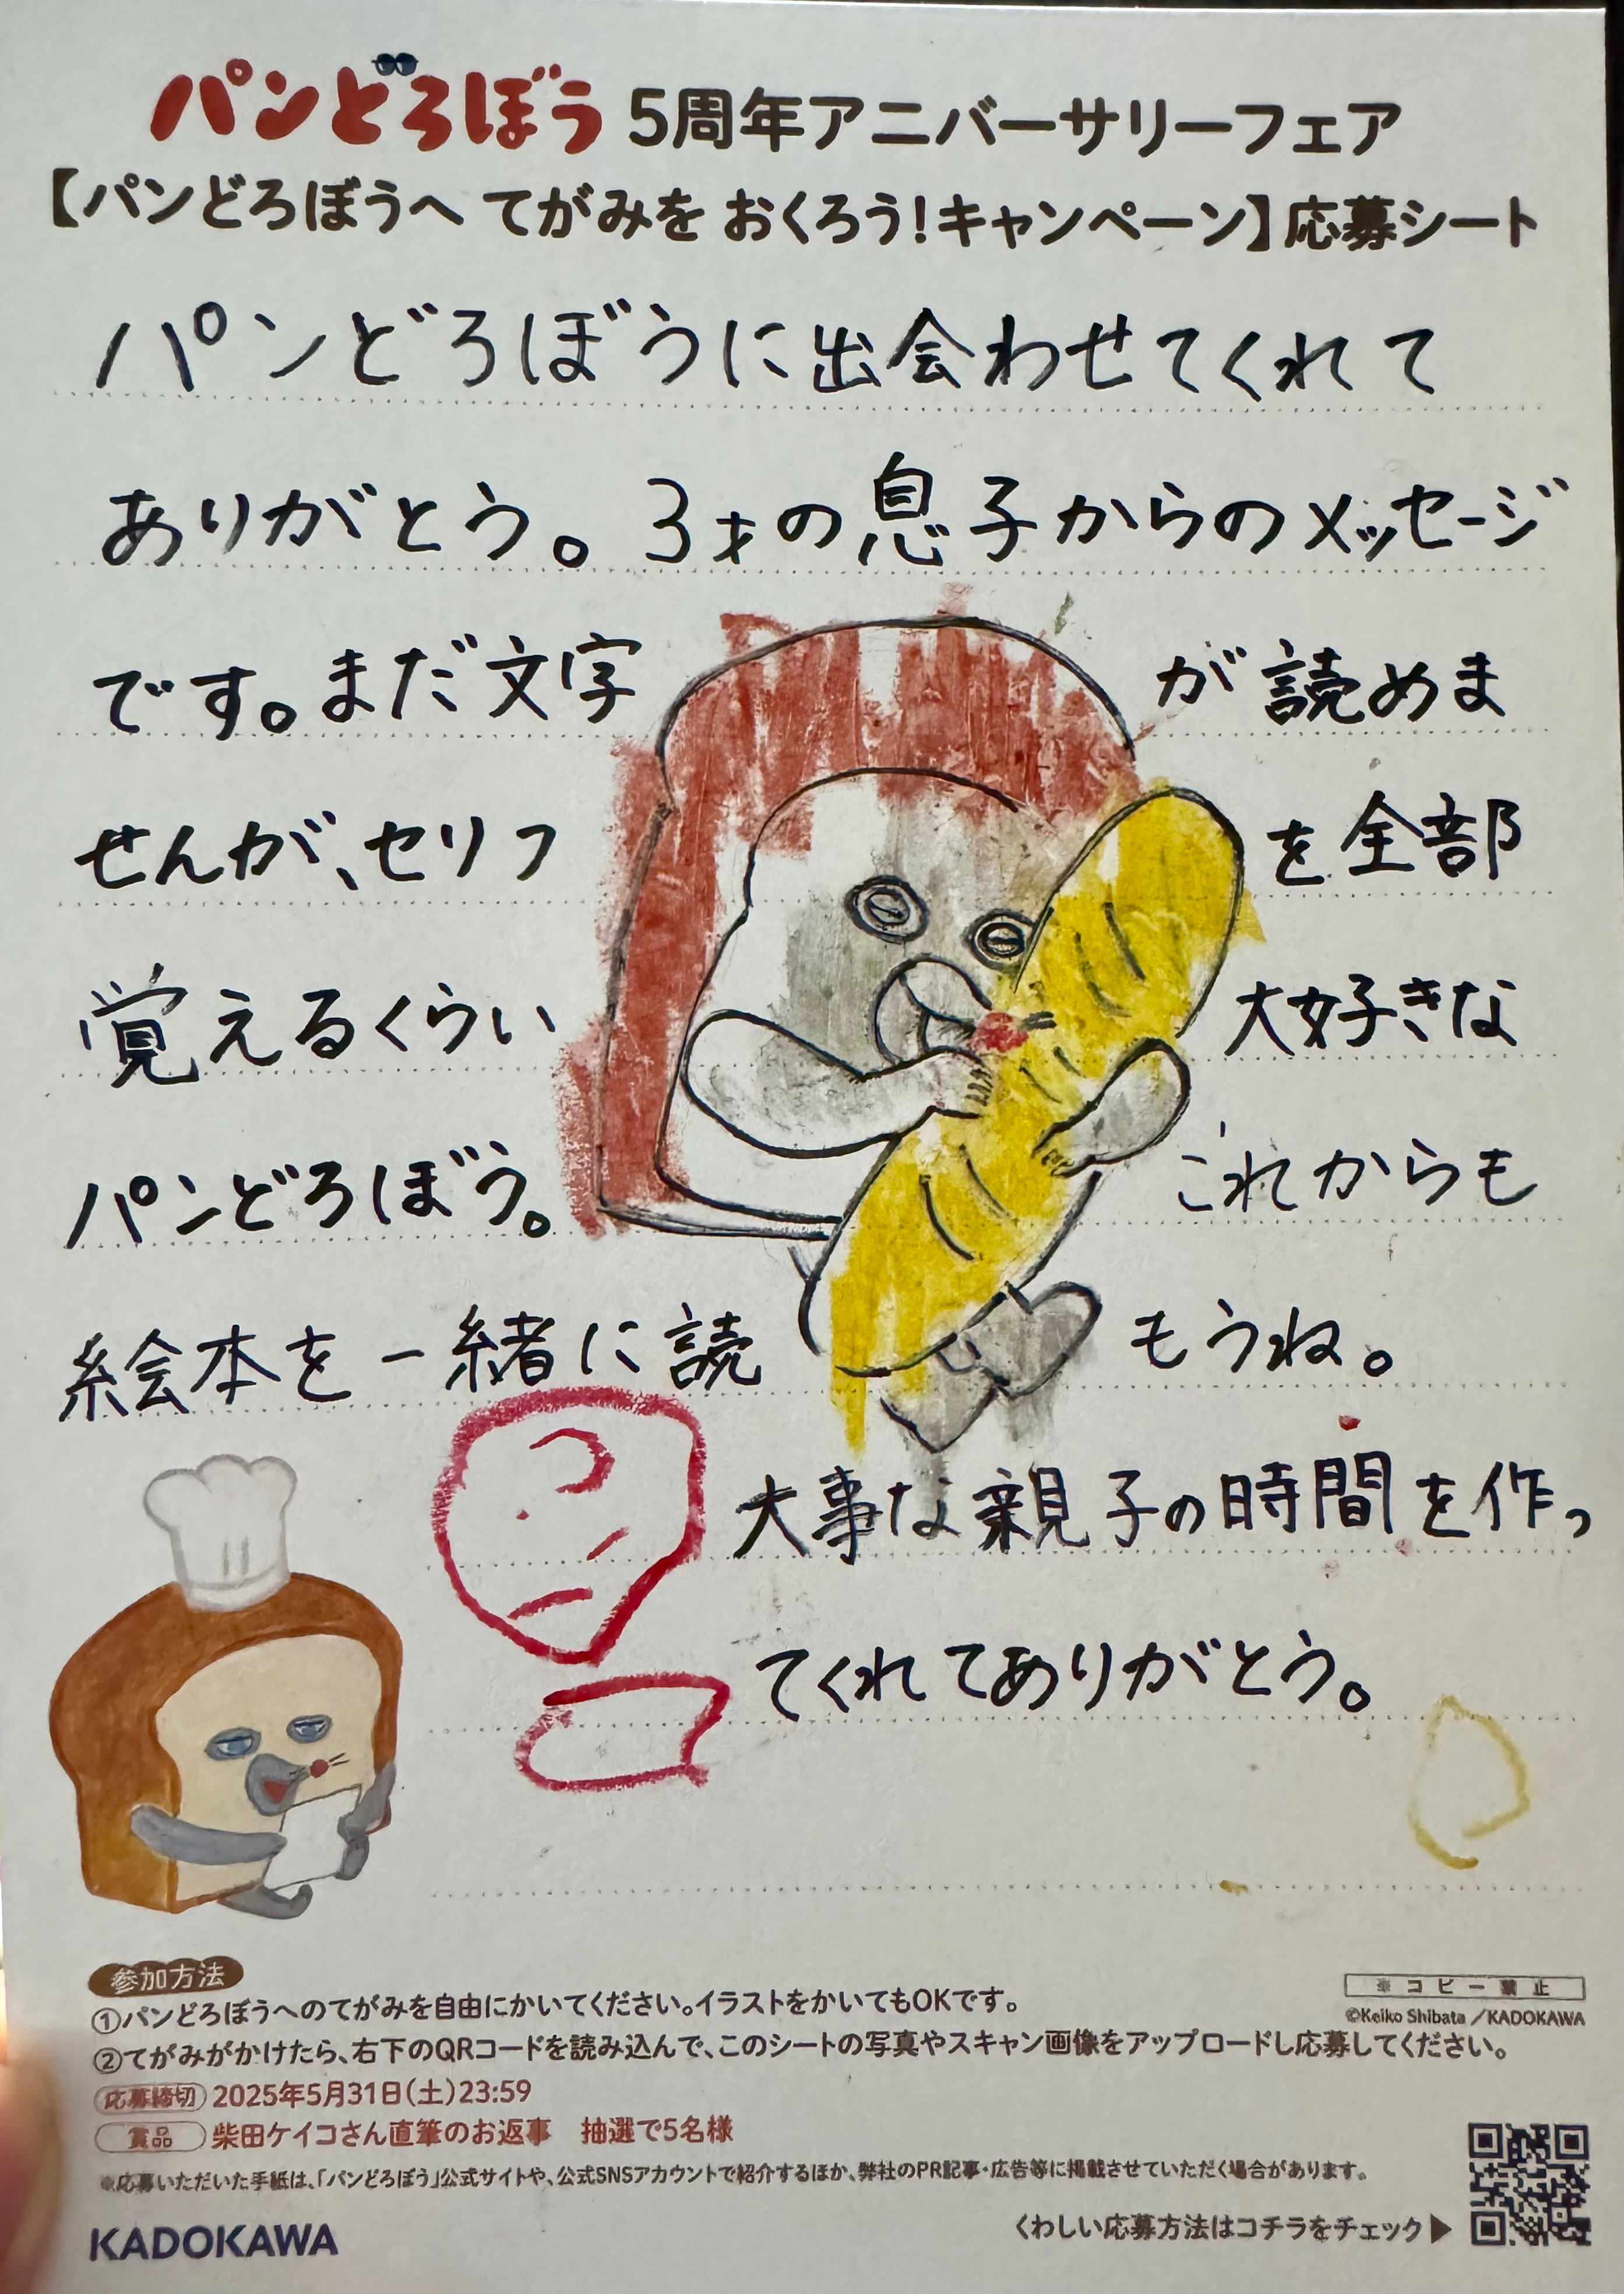 パンどろぼう 5周年アニバーサリーフェア
【パンどろぼうへ てがみを おくろう!キャンペーン】応募シート
パンどろぼうに出会わせてくれて
ありがとう。3才の息子からのメッセージ
です。まだ文字が読めま
せんが、セリフを全部
覚えるくらい大好きな
パンどろぼう。これからも
絵本を一緒に読もうね。
大事な親子の時間を作っ
てくれてありがとう。
参加方法
①パンどろぼうへのてがみを自由にかいてください。イラストをかいてもOKです。
②てがみがかけたら、右下のQRコードを読み込んで、このシートの写真やスキャン画像をアップロードし応募してください。
応募締切 2025年5月31日(土)23:59
賞品 柴田ケイコさん直筆のお返事 抽選で5名様
※応募いただいた手紙は、「パンどろぼう」公式サイトや、公式SNSアカウントで紹介するほか、弊社のPR記事・広告等に掲載させていただく場合があります。
※コピー禁止
©Keiko Shibata/KADOKAWA
くわしい応募方法はコチラをチェック▶
KADOKAWA